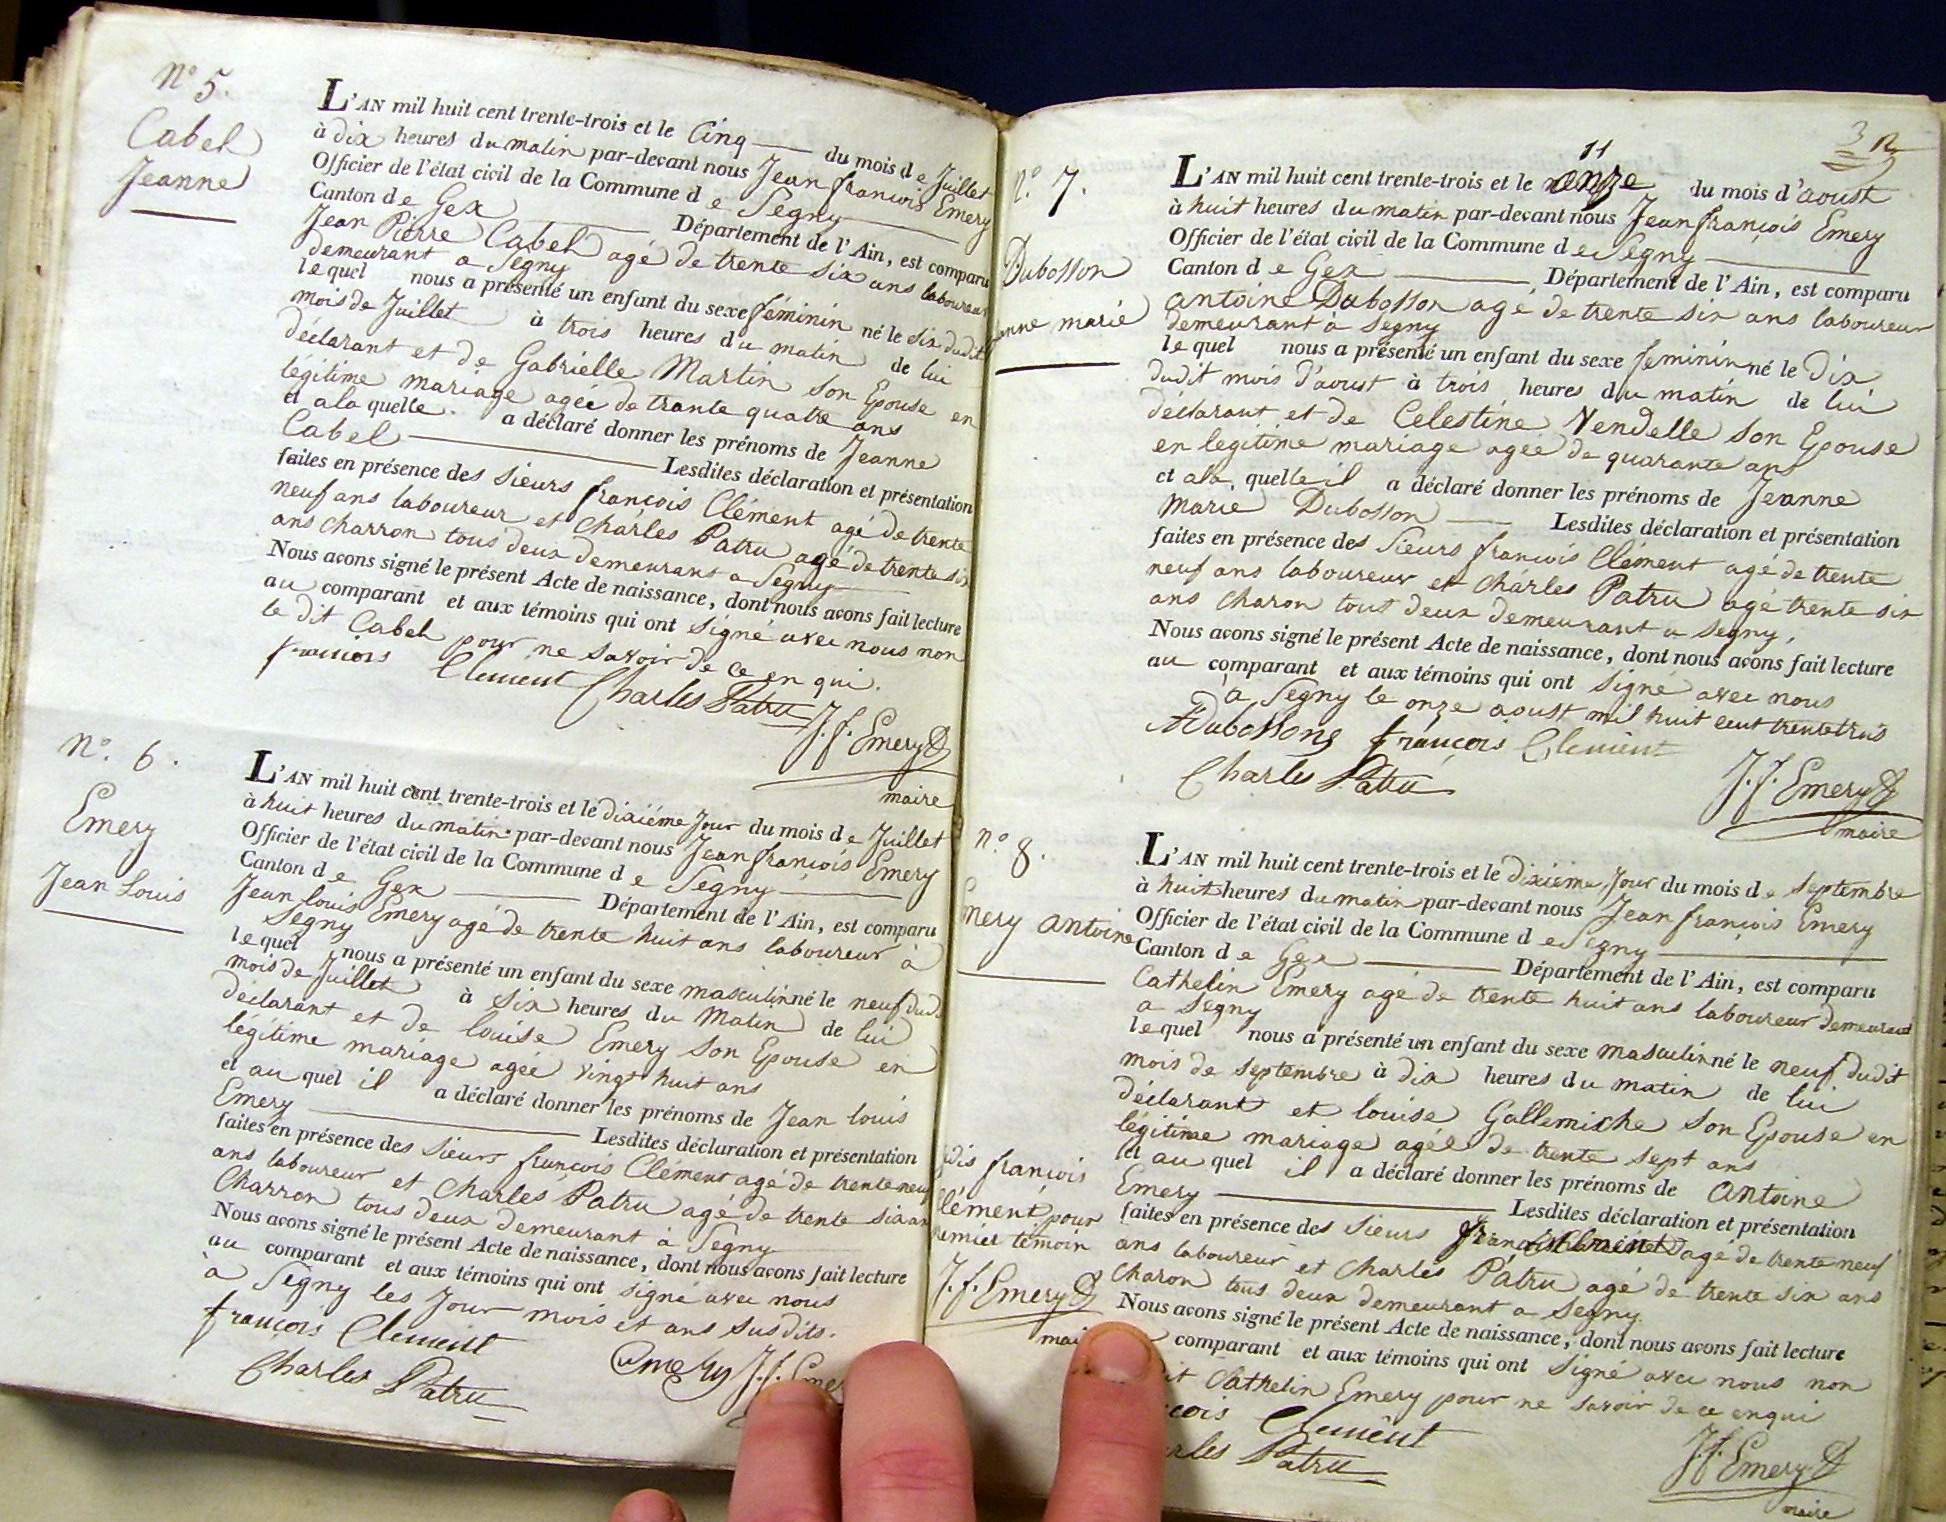 N° 5.
Cabel
Jeanne
L'AN mil huit cent trente-trois et le Cinq du mois de Juillet
à dix heures du matin par-devant nous Jean françois Emery
Officier de l'état civil de la Commune de Segny
Canton de Gex Département de l'Ain, est comparu
Jean Pierre Cabel agé de trente six ans laboureur
demeurant a Segny
lequel nous a présenté un enfant du sexe féminin né le six dudit
mois de Juillet à trois heures du matin de lui
déclarant et de Gabrielle Martin son Epouse en
légitime mariage agée de trante quatre ans
et a la quelle a déclaré donner les prénoms de Jeanne
Cabel Lesdites déclaration et présentation
faites en présence des Sieurs françois Clément agé de trente
neuf ans laboureur et Charles Patru agé de trente six
ans charron tous deux demeurant a Segny
Nous avons signé le présent Acte de naissance, dont nous avons fait lecture
au comparant et aux témoins qui ont signé avec nous non
le dit Cabel pour ne savoir de ce en qui.
françois Clement Charles Patru
J. f. Emery
maire
N°. 6.
Emery
Jean Louis
L'AN mil huit cent trente-trois et le dixiéme Jour du mois de Juillet
à huit heures du matin par-devant nous Jean françois Emery
Officier de l'état civil de la Commune de Segny
Canton de Gex Département de l'Ain, est comparu
Jean louis Emery agé de trente huit ans laboureur à
Segny
lequel nous a présenté un enfant du sexe masculin né le neuf dud
mois de Juillet à six heures du Matin de lui
déclarant et de louise Emery son Epouse en
légitime mariage agée vingt huit ans
et au quel il a déclaré donner les prénoms de Jean louis
Emery Lesdites déclaration et présentation
faites en présence des Sieurs françois Clément agé de trente neuf
ans laboureur et Charles Patru agé de trente six an
Charron tous deux demeurant à Segny
Nous avons signé le présent Acte de naissance, dont nous avons fait lecture
au comparant et aux témoins qui ont signé avec nous
à Segny les Jour mois et ans susdits.
françois Clement
Charles Patru Emery J. f. Emer
3
N°. 7.
Dubosson
anne marie
11
L'AN mil huit cent trente-trois et le onze du mois d'aoust
à huit heures du matin par-devant nous Jean françois Emery
Officier de l'état civil de la Commune de Segny
Canton de Gex Département de l'Ain, est comparu
antoine Dubosson agé de trente six ans laboureur
demeurant à Segny
lequel nous a présenté un enfant du sexe feminin né le Dix
dudit mois d'aoust à trois heures du matin de lui
déclarant et de Celestine Vendelle son Epouse
en légitime mariage agée de quarante ans
et a la quelle il a déclaré donner les prénoms de Jeanne
Marie Dubosson Lesdites déclaration et présentation
faites en présence des Sieurs françois Clément agé de trente
neuf ans laboureur et Charles Patru agé trente six
ans charon tous deux demeurant a Segny,
Nous avons signé le présent Acte de naissance, dont nous avons fait lecture
au comparant et aux témoins qui ont signé avec nous
à Segny le onze aoust mil huit cent trente trois
françois Clement
Charles Patru
J. f. Emery
maire
n°. 8.
mery antoine
L'AN mil huit cent trente-trois et le dixieme Jour du mois de Septembre
à huit heures du matin par-devant nous Jean françois Emery
Officier de l'état civil de la Commune de Segny
Canton de Gex Département de l'Ain, est comparu
Cathelin Emery agé de trente huit ans laboureur demeurant
a Segny
lequel nous a présenté un enfant du sexe masculin né le neuf dudit
mois de septembre à dix heures du matin de lui
déclarant et louise Gallemiche son Epouse en
légitime mariage agée de trente sept ans
et au quel il a déclaré donner les prénoms de Antoine
Emery Lesdites déclaration et présentation
faites en présence des Sieurs agé de trente neuf
ans laboureur et Charles Patru agé de trente six ans
Charon tous deux demeurant a Segny
Nous avons signé le présent Acte de naissance, dont nous avons fait lecture
comparant et aux témoins qui ont signé avec nous non
it Cathelin Emery pour ne savoir de ce enqui
cois Clement
rles Patru
J. f. Emery
maire
dis françois
lément pour
emier témoin
J. f. Emery
mai